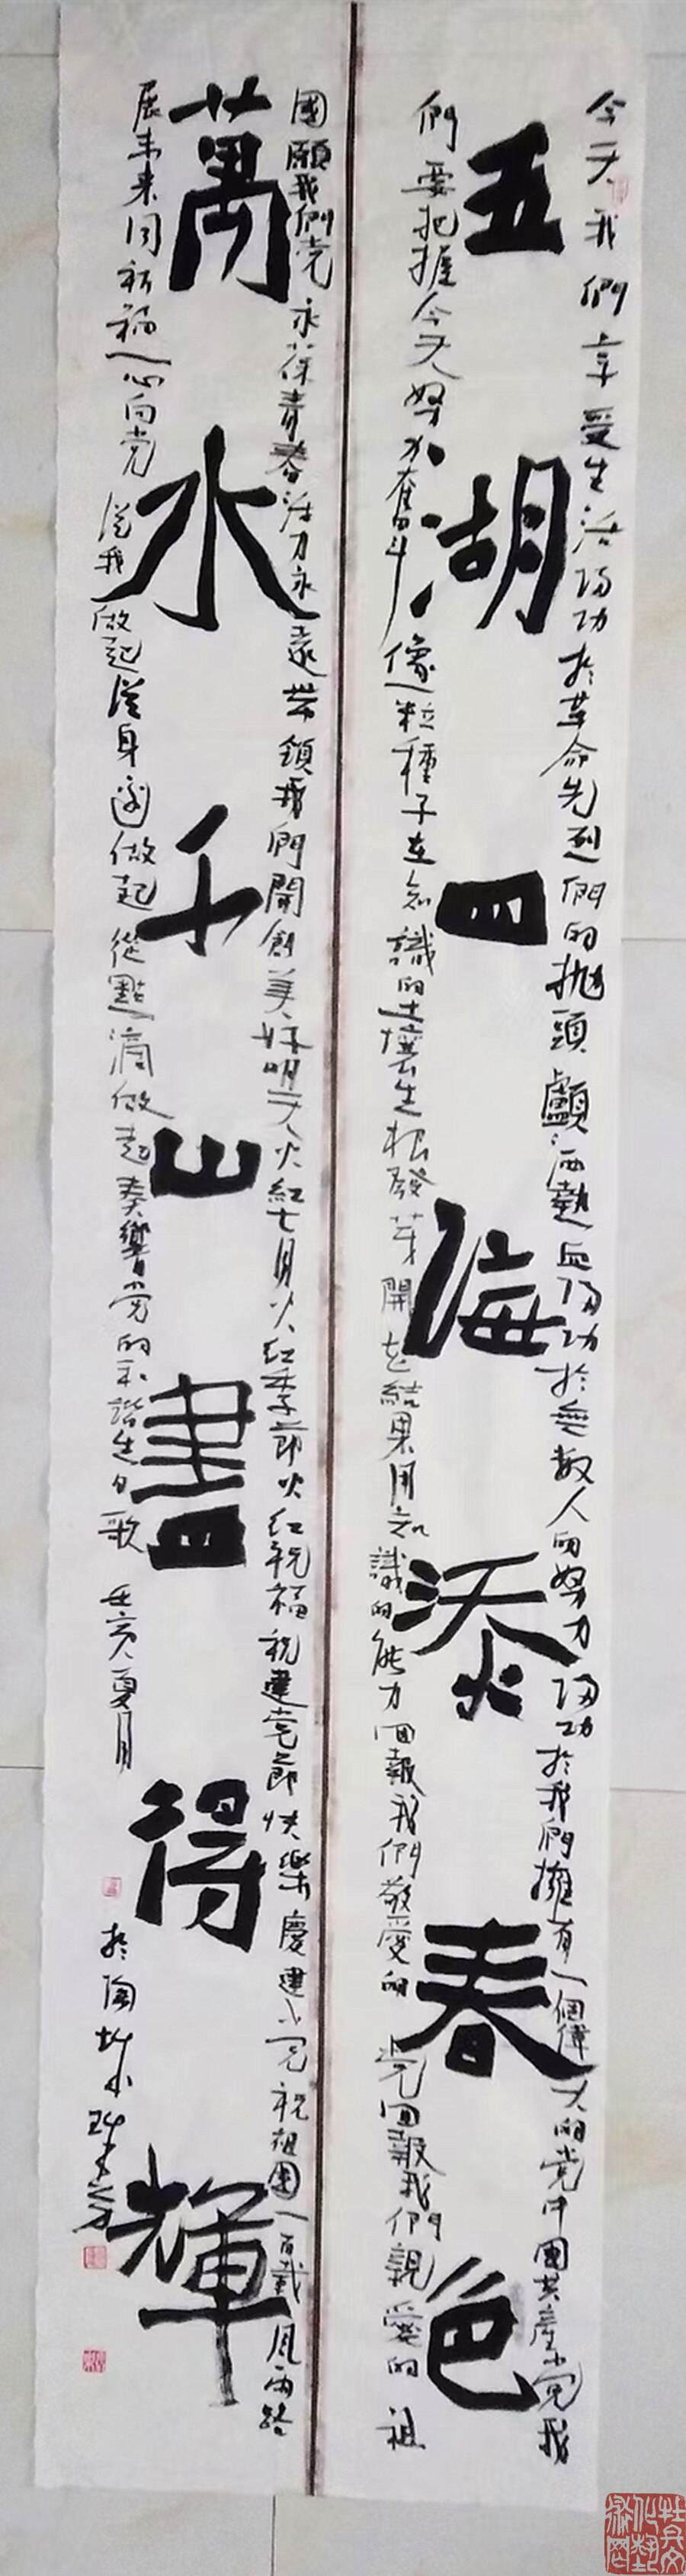 五湖四海添春色
今天我們享受生活歸功於革命先烈們的拋頭顱洒熱血歸功於無數人的努力歸功於我們擁有一個偉大的党中國共產党我
們要把握今天努力奮斗像一粒種子在知識的土壤生根發芽開花結果用知識的能力回報我們敬愛的党回報我們親愛的祖
萬水千山畫得輝
國願我們党永葆青春活力永遠帶領我們開創美好明天火紅七月火紅季節火紅祝福祝建党節快樂慶建党祝祖國一百載風雨路
展未來同祈福一心向党從我做起從身邊做起從點滴做起奏響党的和諧生日歌 壬亥夏月